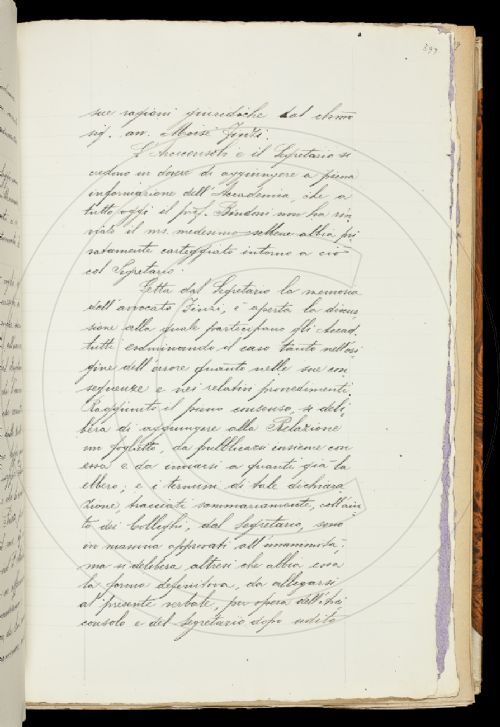 399
sue ragioni giuridiche dal chmo
sig. av. Moisè Finzi.
L'Arciconsolo e il Segretario si
credono in dovere di aggiungere a piena
informazione dell'Accademia, che a
tutt'oggi il prof. Biadene non ha rin
viato il ms. medesimo sebbene abbia pri
vatamente carteggiato intorno a ciò
col Segretario.
Letta dal Segretario la memoria
dell'avvocato Finzi, è aperta la discus
sione alla quale partecipano gli Accad.
tutti esaminando il caso tanto nell'ori
gine dell'errore quanto nelle sue con
seguenze e nei relativi provvedimenti.
Raggiunto il pieno consenso, si deli
bera di aggiungere alla Relazione
un foglietto, da pubblicarsi insieme con
essa e da inviarsi a quanti già la
ebbero; e i termini di tale dichiara
zione, tracciati sommariamente, coll'aiu
to dei Colleghi, dal Segretario, sono
in massima approvati all'unanimità;
ma si delibera altresì che abbia essa
la forma definitiva, da allegarsi
al presente verbale, per opera dell'Arci
consolo e del Segretario dopo udito